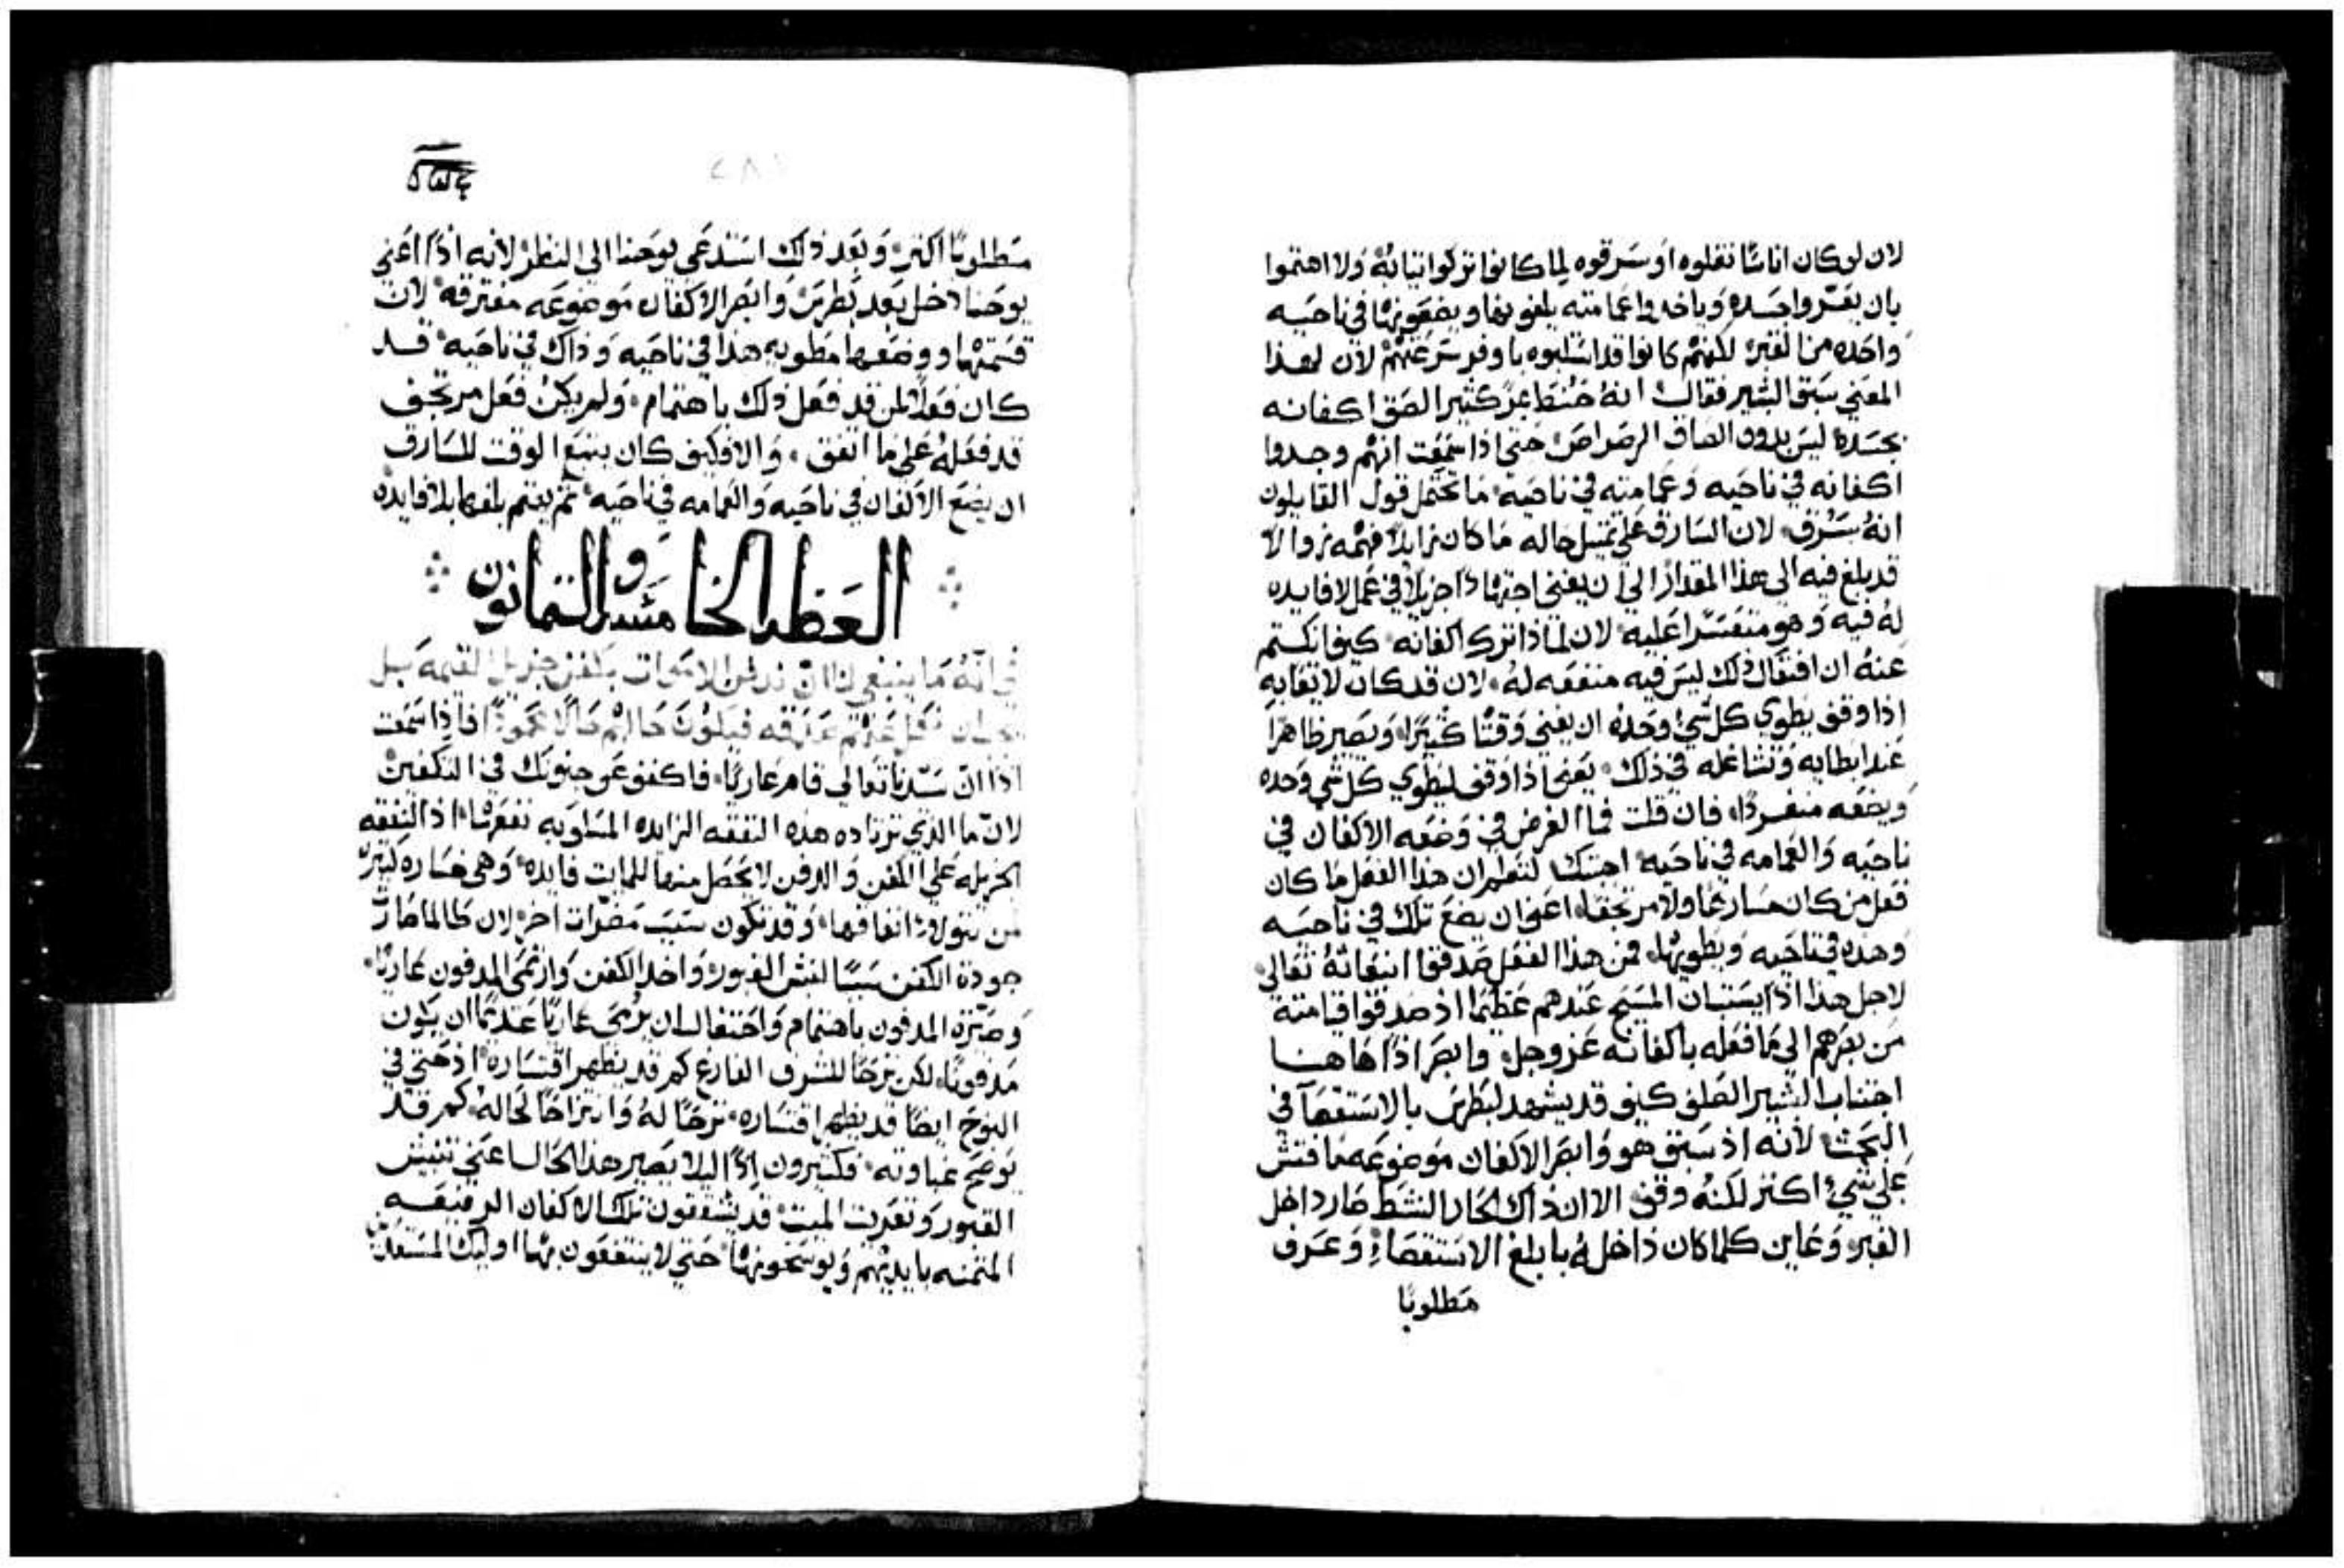 لان لو كان اناسًا نقلوه او سرقوه لما كانوا تركوا ثيابهُ ولا اهتموا
بان يعرّوا جسده وياخدوا عمامته يلفونها ويضعونها في ناحيه
واحده من القبر لكنهم كانوا قد استلبوه باوفر سرعتهم لان لهذا
المعني سبق البشير فقال انهُ حنط بمرّ كثير الصق اكفانه
بجسده ليس بدون الصاق الرصاص حتي اذا سمعت انهم وجدوا
اكفانه في ناحيه وعمامته في ناحيه ما تحتمل قول القايلون
انهُ سرق لان السارق علي تمثيل حاله ما كان زايلاً فهمه زوالاً
قد بلغ فيه الي هذا المقدار الي ان يفني اجتهادًا جزيلاً في عمل لا فايده
لهُ فيه وهو متعسرًا عليه لان لماذا ترك اكفانه كيف انكتم
عنهُ ان افتعال ذلك ليس فيه منفعه لهُ لان قد كان لا بد
اذا وقف يطوي كل شيء وحده ان يفني وقتًا كثيرًا ويصير ظاهرًا
عند ابطايه وتشاغله في ذلك يعني اذا وقف ليطوي كل شي وحده
ويضعه منفردًا فان قلت فما الغرض في وضعه الاكفان في
ناحيه والعمامه في ناحيه اجبتك لتعلم ان هذا الفعل ما كان
فعل من كان مسارعًا ولا مرتجفًا اعني ان يضع تلك في ناحيه
وهذه في ناحيه ويطويها فمن هذا الفعل صدقوا انبعاثهُ تعالي
لاجل هذا اذًا يستبان المسيح عندهم عظيمًا اذ صدقوا قيامته
من بعدهم الي ما فعله باكفانه عز وجل وابصر اذًا هاهنا
اجتناب البشير الصلف كيف قد يشهد لبطرس بالاستقصآ في
البحث لانه اذ سبق هو وابصر الاكفان موضوعه ما فتش
علي شيء اكثر لكنهُ وقف الا ان ذاك الحار النشط صار داخل
القبر وعاين كلما كان داخلهُ بابلغ الاستقصاء وعرف
مطلوبًا
مطلوبًا اكثر وبعد ذلك استدعي يوحنا الي النظر لانه اذًا اعني
يوحنا دخل بعد بطرس وابصر الاكفان موضوعه مفترقه لان
قسمتها ووضعها مطويه هذا في ناحيه وذاك في ناحيه قد
كان فعلاً لمن قد فعل ذلك باهتمام ولم يكن فعل مرتجف
قد فعلهُ علي ما اتفق والا فكيف كان يتسع الوقت للسارق
ان يضع الاكفان في ناحيه والعمامه في ناحيه ثم يهتم بلفها بلا فايده
العظه الخامسه والثمانون
في انهُ ما ينبغي لنا ان ندفن الاموات بكفن جزيل القيمه بل
فاذا سمعت
اذًا ان سيدنا تعالي قام عاريًا فاكفف عن جنونك في التكفين
لان ما الذي تزتاده هذه النفقه الزايده المساويه نفعها اذ النفقه
الجزيله علي الكفن والدفن لا يحصل منها للمايت فايده وهي خساره كثيره
من يتولا انفاقها وقد تكون سبب مضرات اخر لان طالما صارت
جودة الكفن سببًا لنبش القبور واخد الكفن وارتمي المدفون عاريًا
وصيّره المدفون باهتمام واحتفال ان يرمي عاريًا عديمًا ان يكون
مدفونًا لكن ترحًا للشرف الفارغ كم قد يظهر اقتساره اذ حتي في
النوح ايضًا قد يظهر اقتساره ترحًا لهُ وانتزاحًا لحاله كم قد
توضح غباوته فكثيرون اذًا ليلا يصير هذا الحال اعني تفتيش
القبور وتعريت الميت قد يشققون تلك الاكفان الرفيعه
المثمنه بايديهم ويوسخونها حتي لا ينتفعون بها اوليك المستعدين